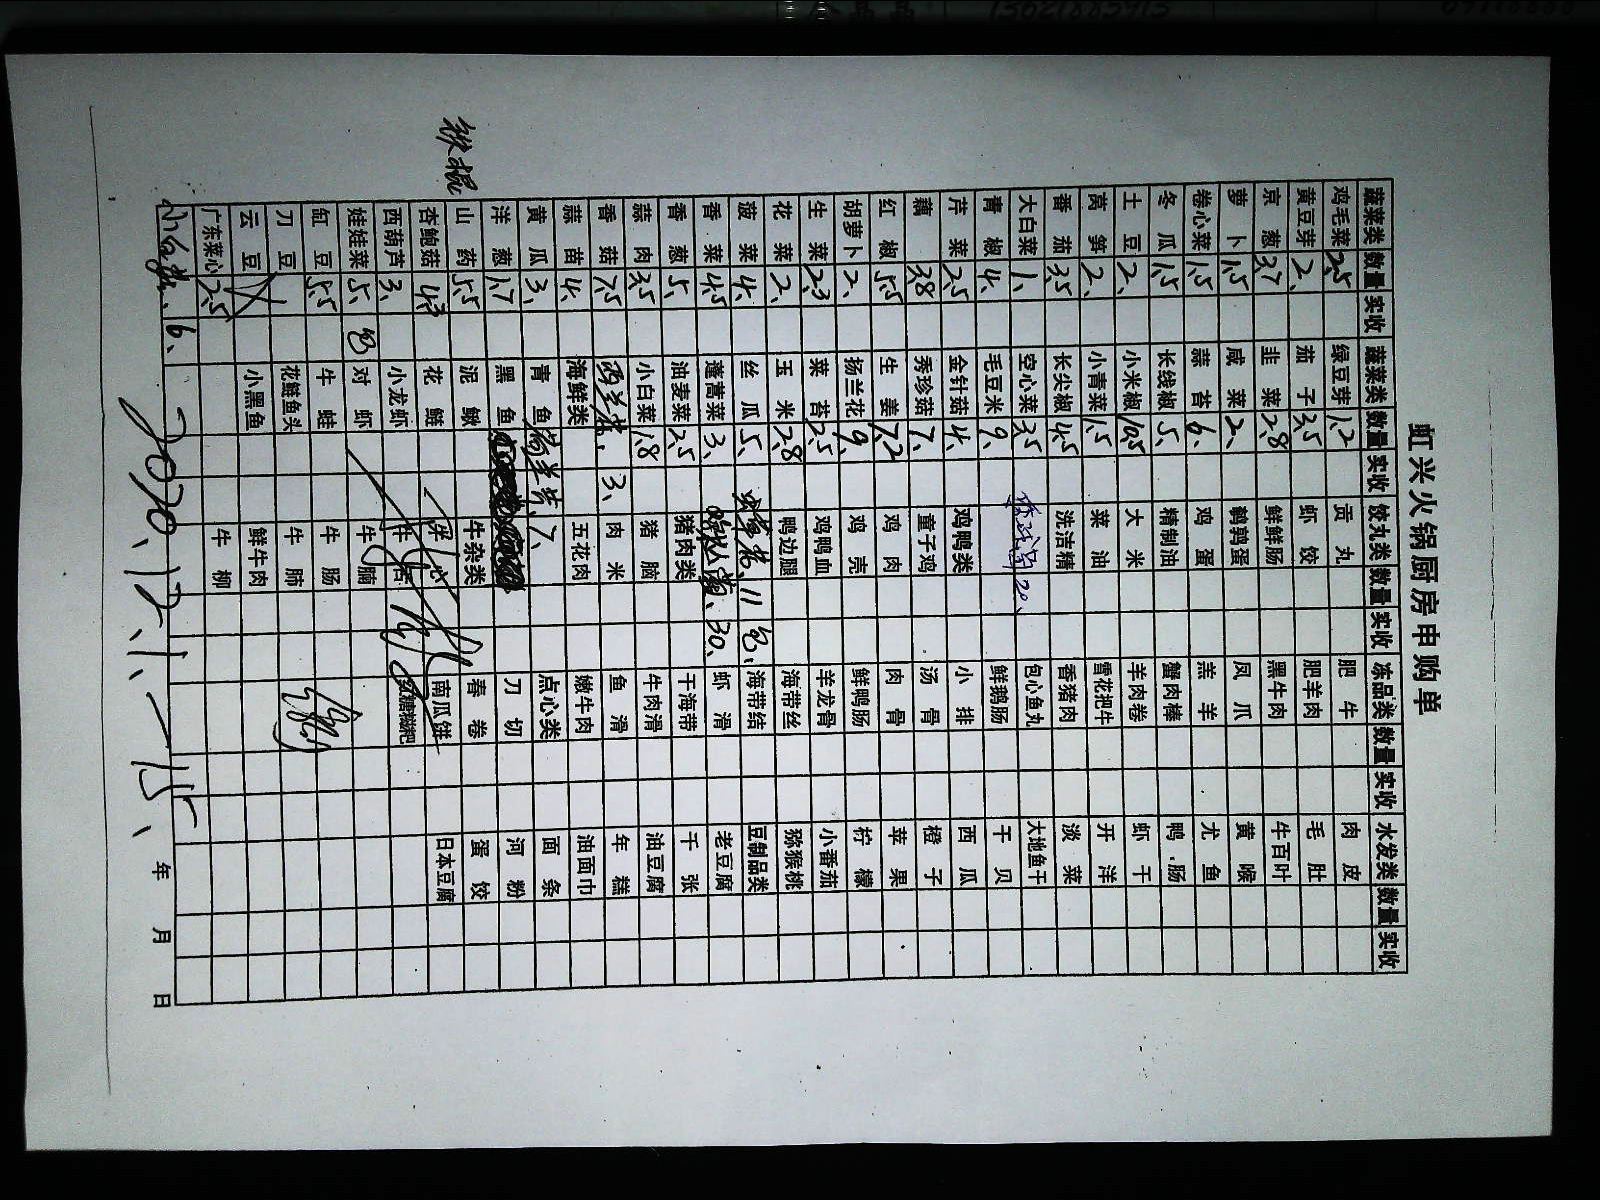 虹兴火锅厨房申购单
蔬菜类 数量 实收 蔬菜类 数量 实收 饺丸类 数量 实收 冻品类 数量 实收 水发类 数量 实收
鸡毛菜 2.5 绿豆芽 1.2 贡丸 肥牛 肉皮
黄豆芽 2、 茄子 3.5 虾饺 肥羊肉 毛肚
京葱 3.7 韭菜 2.8 鲜鲜肠 黑牛肉 牛百叶
萝卜 1.5 咸菜 2、 鹌鹑蛋 凤爪 黄喉
卷心菜 1.5 蒜苔 6、 鸡蛋 羔羊 尤鱼
冬瓜 1.5 长线椒 5、 精制油 蟹肉棒 鸭肠
土豆 2、 小米椒 10.5 大米 羊肉卷 虾干
莴笋 2、 小青菜 1.5 菜油 雪花把牛 开洋
番茄 3.5 长尖椒 4.5 洗洁精 香猪肉 淡菜
大白菜 1、 空心菜 3.5 20、 包心鱼丸 大地鱼干
青椒 4、 毛豆米 9、 鲜鹅肠 干贝
芹菜 2.5 金针菇 4、 鸡鸭类 小排 西瓜
藕 3.8 秀珍菇 7、 童子鸡 汤骨 橙子
红椒 5.5 生姜 7.2 鸡肉 肉骨 苹果
胡萝卜 2、 扬兰花 9、 鸡壳 鲜鸭肠 柠檬
生菜 2.3 菜苔 2.5 鸡鸭血 羊龙骨 小番茄
花菜 2、 玉米 2.8 鸭边腿 海带丝 猕猴桃
菠菜 4、 丝瓜 5、 11 包、 海带结 豆制品类
香菜 4.5 蓬蒿菜 3、 30、 虾滑 老豆腐
香葱 5、 油麦菜 2.5 猪肉类 干海带 干张
蒜肉 3.5 小白菜 1.8 猪脑 牛肉滑 油豆腐
香菇 7.5 西兰花、 3、 肉米 鱼滑 年糕
蒜苗 4、 海鲜类 五花肉 嫩牛肉 油面巾
黄瓜 3、 青鱼 7、 点心类 面条
洋葱 1.7 黑鱼 刀切 河粉
山药 5.5 泥鳅 牛杂类 春卷 蛋饺
杏鲍菇 4.3 花鲢 牛心 南瓜饼 日本豆腐
西葫芦 3、 小龙虾 牛舌
娃娃菜 5、 包 对虾 牛腩
缸豆 5.5 牛蛙 牛肠
刀豆 花鲢鱼头 牛肺
云豆 小黑鱼 鲜牛肉
广东菜心 2.5 牛柳
6、
铁棍
2020、12、1、一15、
年 月 日